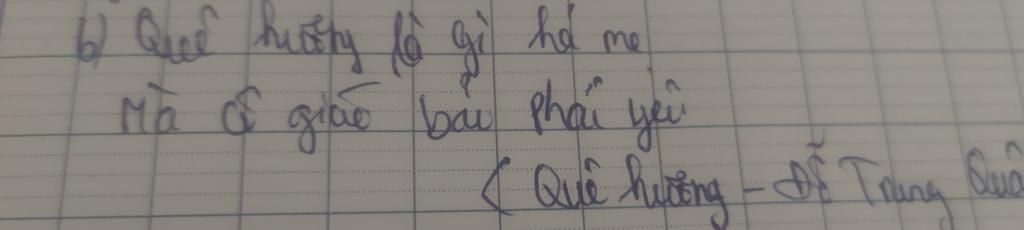 b) Quê hương là gì hở mẹ
Mà cô giáo bảo phải yêu
( Quê hương - Đỗ Trung Quâ